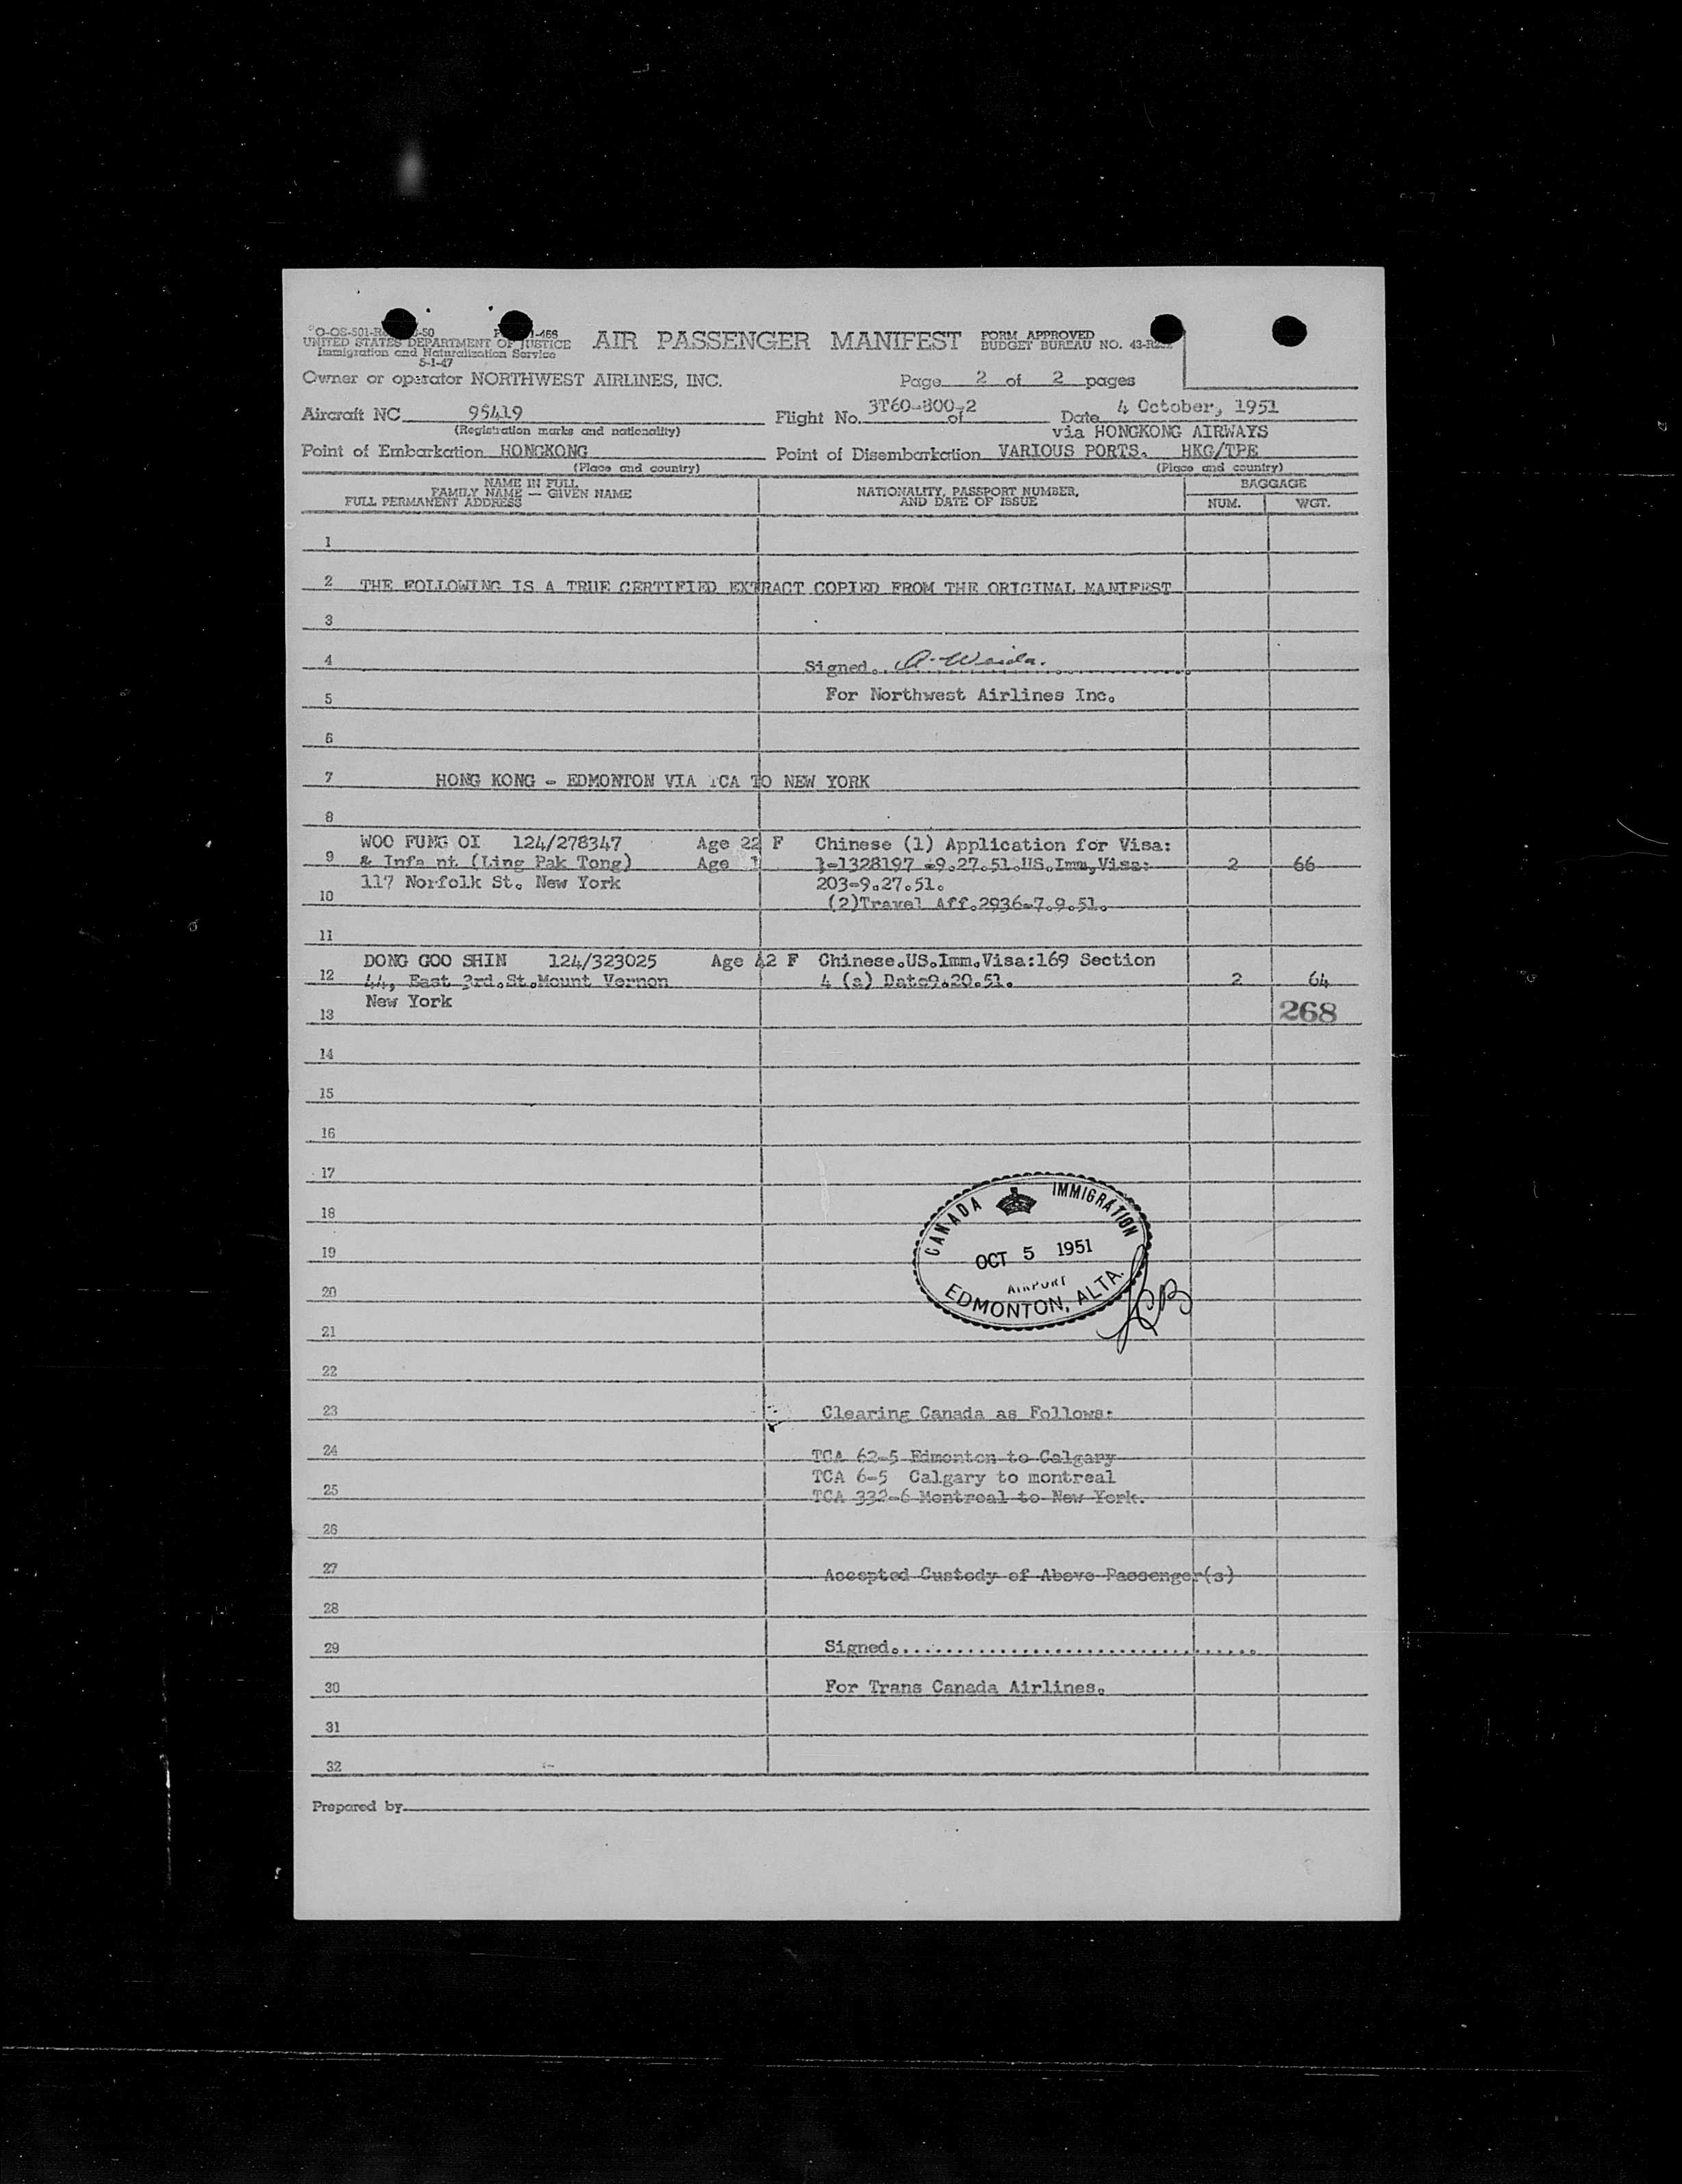 UNITED STATES DEPARTMENT OF JUSTICE
Immigration and Naturalization Service
5-1-47
AIR PASSENGER MANIFEST
FORM APPROVED
BUDGET BUREAU NO.
Owner or operator NORTHWEST AIRLINES, INC.
Page 2 of 2 pages
Aircraft NC 95419
(Registration marks and nationality)
Flight No. 3T60-800-2 of
Date 4 October, 1951
via HONGKONG AIRWAYS
Point of Embarkation HONGKONG
(Place and country)
Point of Disembarkation VARIOUS PORTS. HKG/TPE
(Place and country)
NAME IN FULL
FAMILY NAME — GIVEN NAME
FULL PERMANENT ADDRESS
NATIONALITY, PASSPORT NUMBER,
AND DATE OF ISSUE
BAGGAGE
NUM. WGT.
1
2 THE FOLLOWING IS A TRUE CERTIFIED EXTRACT COPIED FROM THE ORIGINAL MANIFEST
3
4 Signed. A. Weida.
5 For Northwest Airlines Inc.
6
7 HONG KONG - EDMONTON VIA TCA TO NEW YORK
8
WOO FUNG OI 124/278347 Age 22 F Chinese (1) Application for Visa:
9 & Infa nt (Ling Pak Tong) Age 1 1-1328197 -9.27.51.US.Imm,Visa: 2 66
117 Norfolk St. New York 203-9.27.51.
10 (2)Travel Aff.2936-7.9.51.
11
DONG GOO SHIN 124/323025 Age 42 F Chinese.US.Imm.Visa:169 Section
12 44, East 3rd.St.Mount Vernon 4 (a) Date9.20.51. 2 64
New York
13 268
14
15
16
17
18
19
20
21
CANADA IMMIGRATION
OCT 5 1951
AIRPORT
EDMONTON, ALTA.
22
23 Clearing Canada as Follows:
24 TCA 62-5 Edmonton to Calgary
TCA 6-5 Calgary to montreal
25 TCA 332-6 Montreal to New York.
26
27 Accepted Custody of Above Passenger(s)
28
29 Signed.................................
30 For Trans Canada Airlines.
31
32
Prepared by